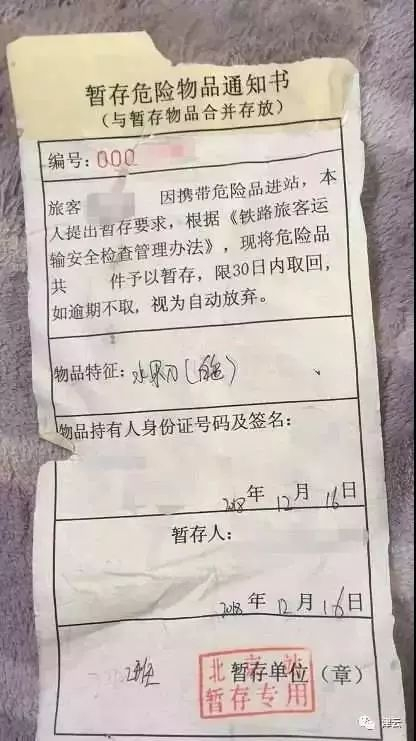 暂存危险物品通知书
(与暂存物品合并存放)
编号：000
旅客 因携带危险品进站，本
人提出暂存要求，根据《铁路旅客运
输安全检查管理办法》，现将危险品
共 件予以暂存，限30日内取回，
如逾期不取，视为自动放弃。
物品特征：水果刀（白色）
物品持有人身份证号码及签名：
2018年12月16日
暂存人：
2018年12月16日
暂存单位（章）
北 站
暂存专用
津云